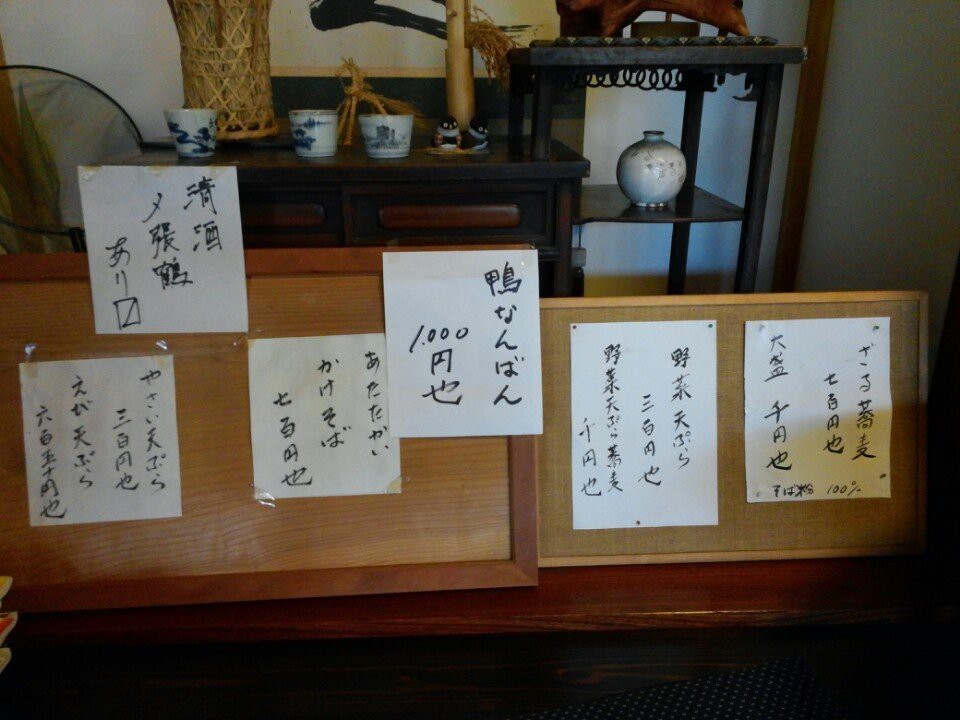 ざる蕎麦
七百円也
大盛 千円也
そば粉 100%
野菜天ぷら
三百円也
野菜天ぷら蕎麦
千円也
鴨なんばん
1.000円也
あたたかい
かけそば
七百円也
清酒
〆張鶴
あり〼
やさい天ぷら
三百円也
えび天ぷら
六百五十円也